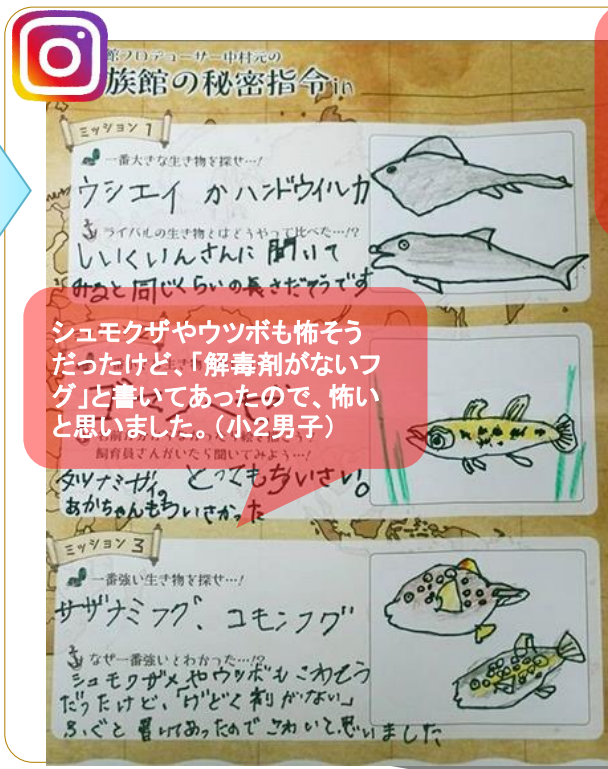 館プロデューサー中村元の
族館の秘密指令in
ミッション1
一番大きな生き物を探せ…!
ウシエイ かハンドウイルカ
ライバルの生き物とはどうやって比べた…!?
しいくいんさんに聞いて
みると同じくらいの長さだそうです
シュモクザやウツボも怖そう
だったけど、「解毒剤がないフ
グ」と書いてあったので、怖い
と思いました。（小2男子）
飼育員さんがいたら聞いてみよう…!
タツナミガイの とってもちいさい。
あかちゃんもちいさかった
ミッション3
一番強い生き物を探せ…!
サザナミフグ、コモンフグ
なぜ一番強いとわかった…!?
シュモクザメやウツボもこわそう
だったけど、「げどく剤がない」
ふぐと書いてあったのでこわいと思いました